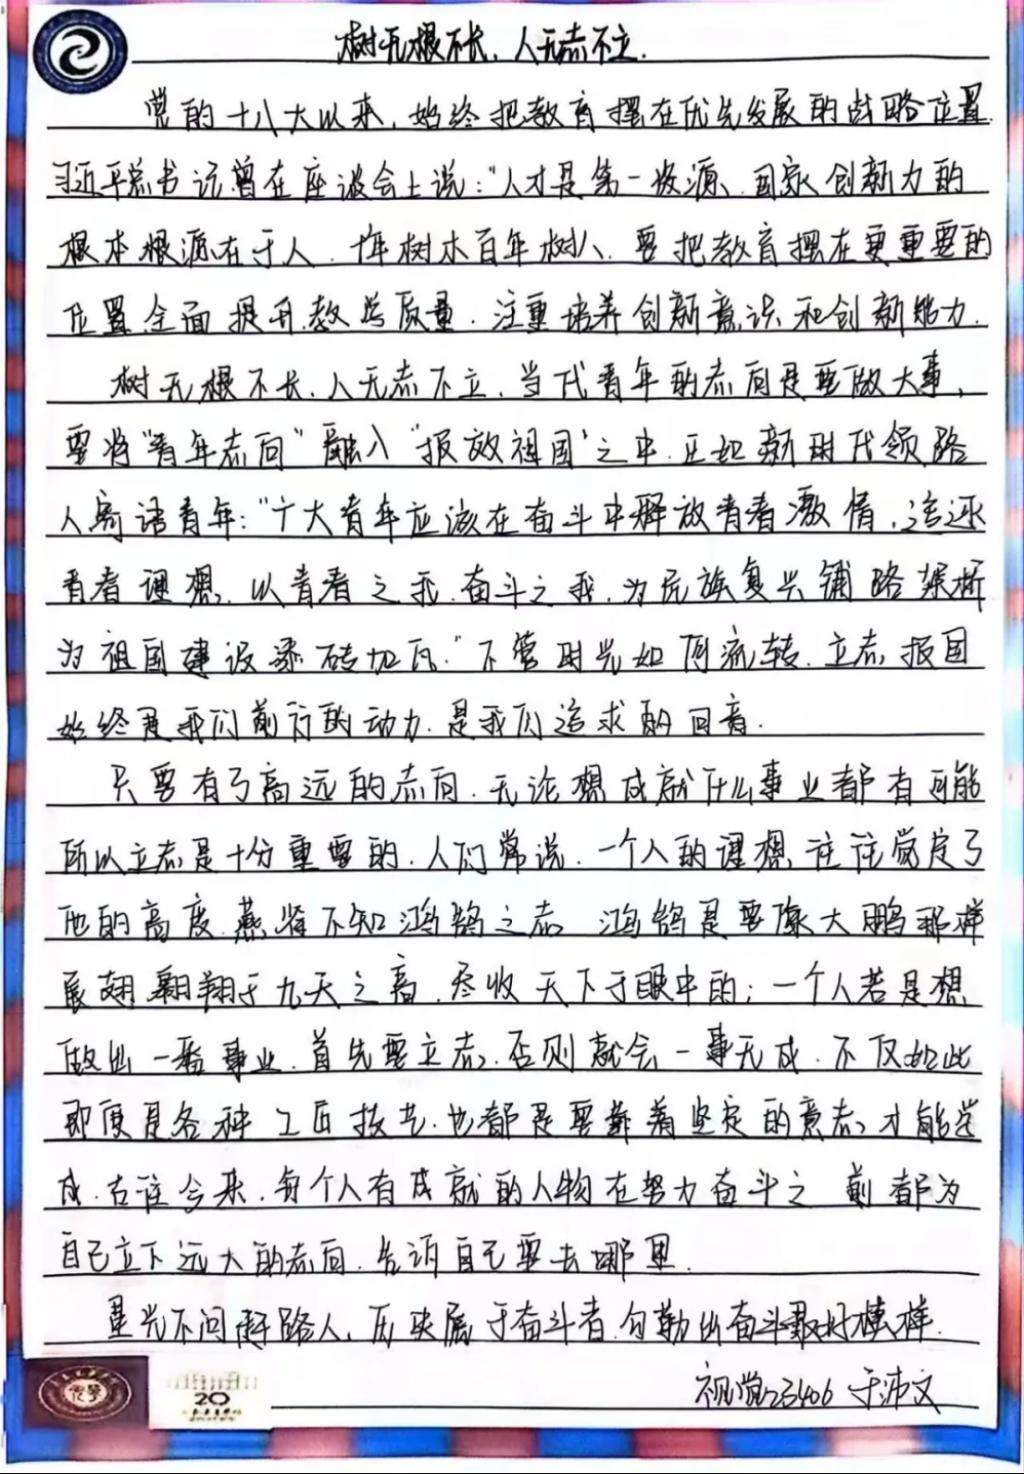 树无根不长，人无志不立.
党的十八大以来，始终把教育摆在优先发展的战略位置.
习近平总书记曾在座谈会上说："人才是第一资源、国家创新力的
根本根源在于人. 十年树木百年树人、要把教育摆在更重要的
位置.全面提升教学质量. 注重培养创新意识和创新能力.
树无根不长.人无志不立. 当代青年的志向是要做大事，
要将"青年志向"融入"报效祖国"之中.正如新时代领路
人寄语青年："广大青年应该在奋斗中释放青春激情，追逐
青春理想. 以青春之我.奋斗之我.为民族复兴铺路架桥
为祖国建设添砖加瓦."不管时光如何流转.立志报国
始终是我们前行的动力.是我们追求的回音.
只要有了高远的志向.无论想成就什么事业都有可能
所以立志是十分重要的.人们常说.一个人的理想往往决定了
他的高度.燕雀不知鸿鹄之志 鸿鹄是要像大鹏那样
展翅翱翔于九天之高.尽收天下于眼中的；一个人若是想
做出一番事业.首先要立志.否则就会一事无成.不仅如此
即便是各种工匠技艺.也都是要靠着坚定的意志.才能学
成.古往今来.每个人有成就的人物在努力奋斗之前都为
自己立下远大的志向.告诉自己要去哪里.
星光不问赶路人，历史属于奋斗者.勾勒出奋斗最好模样.
视觉23406 于沛文
20